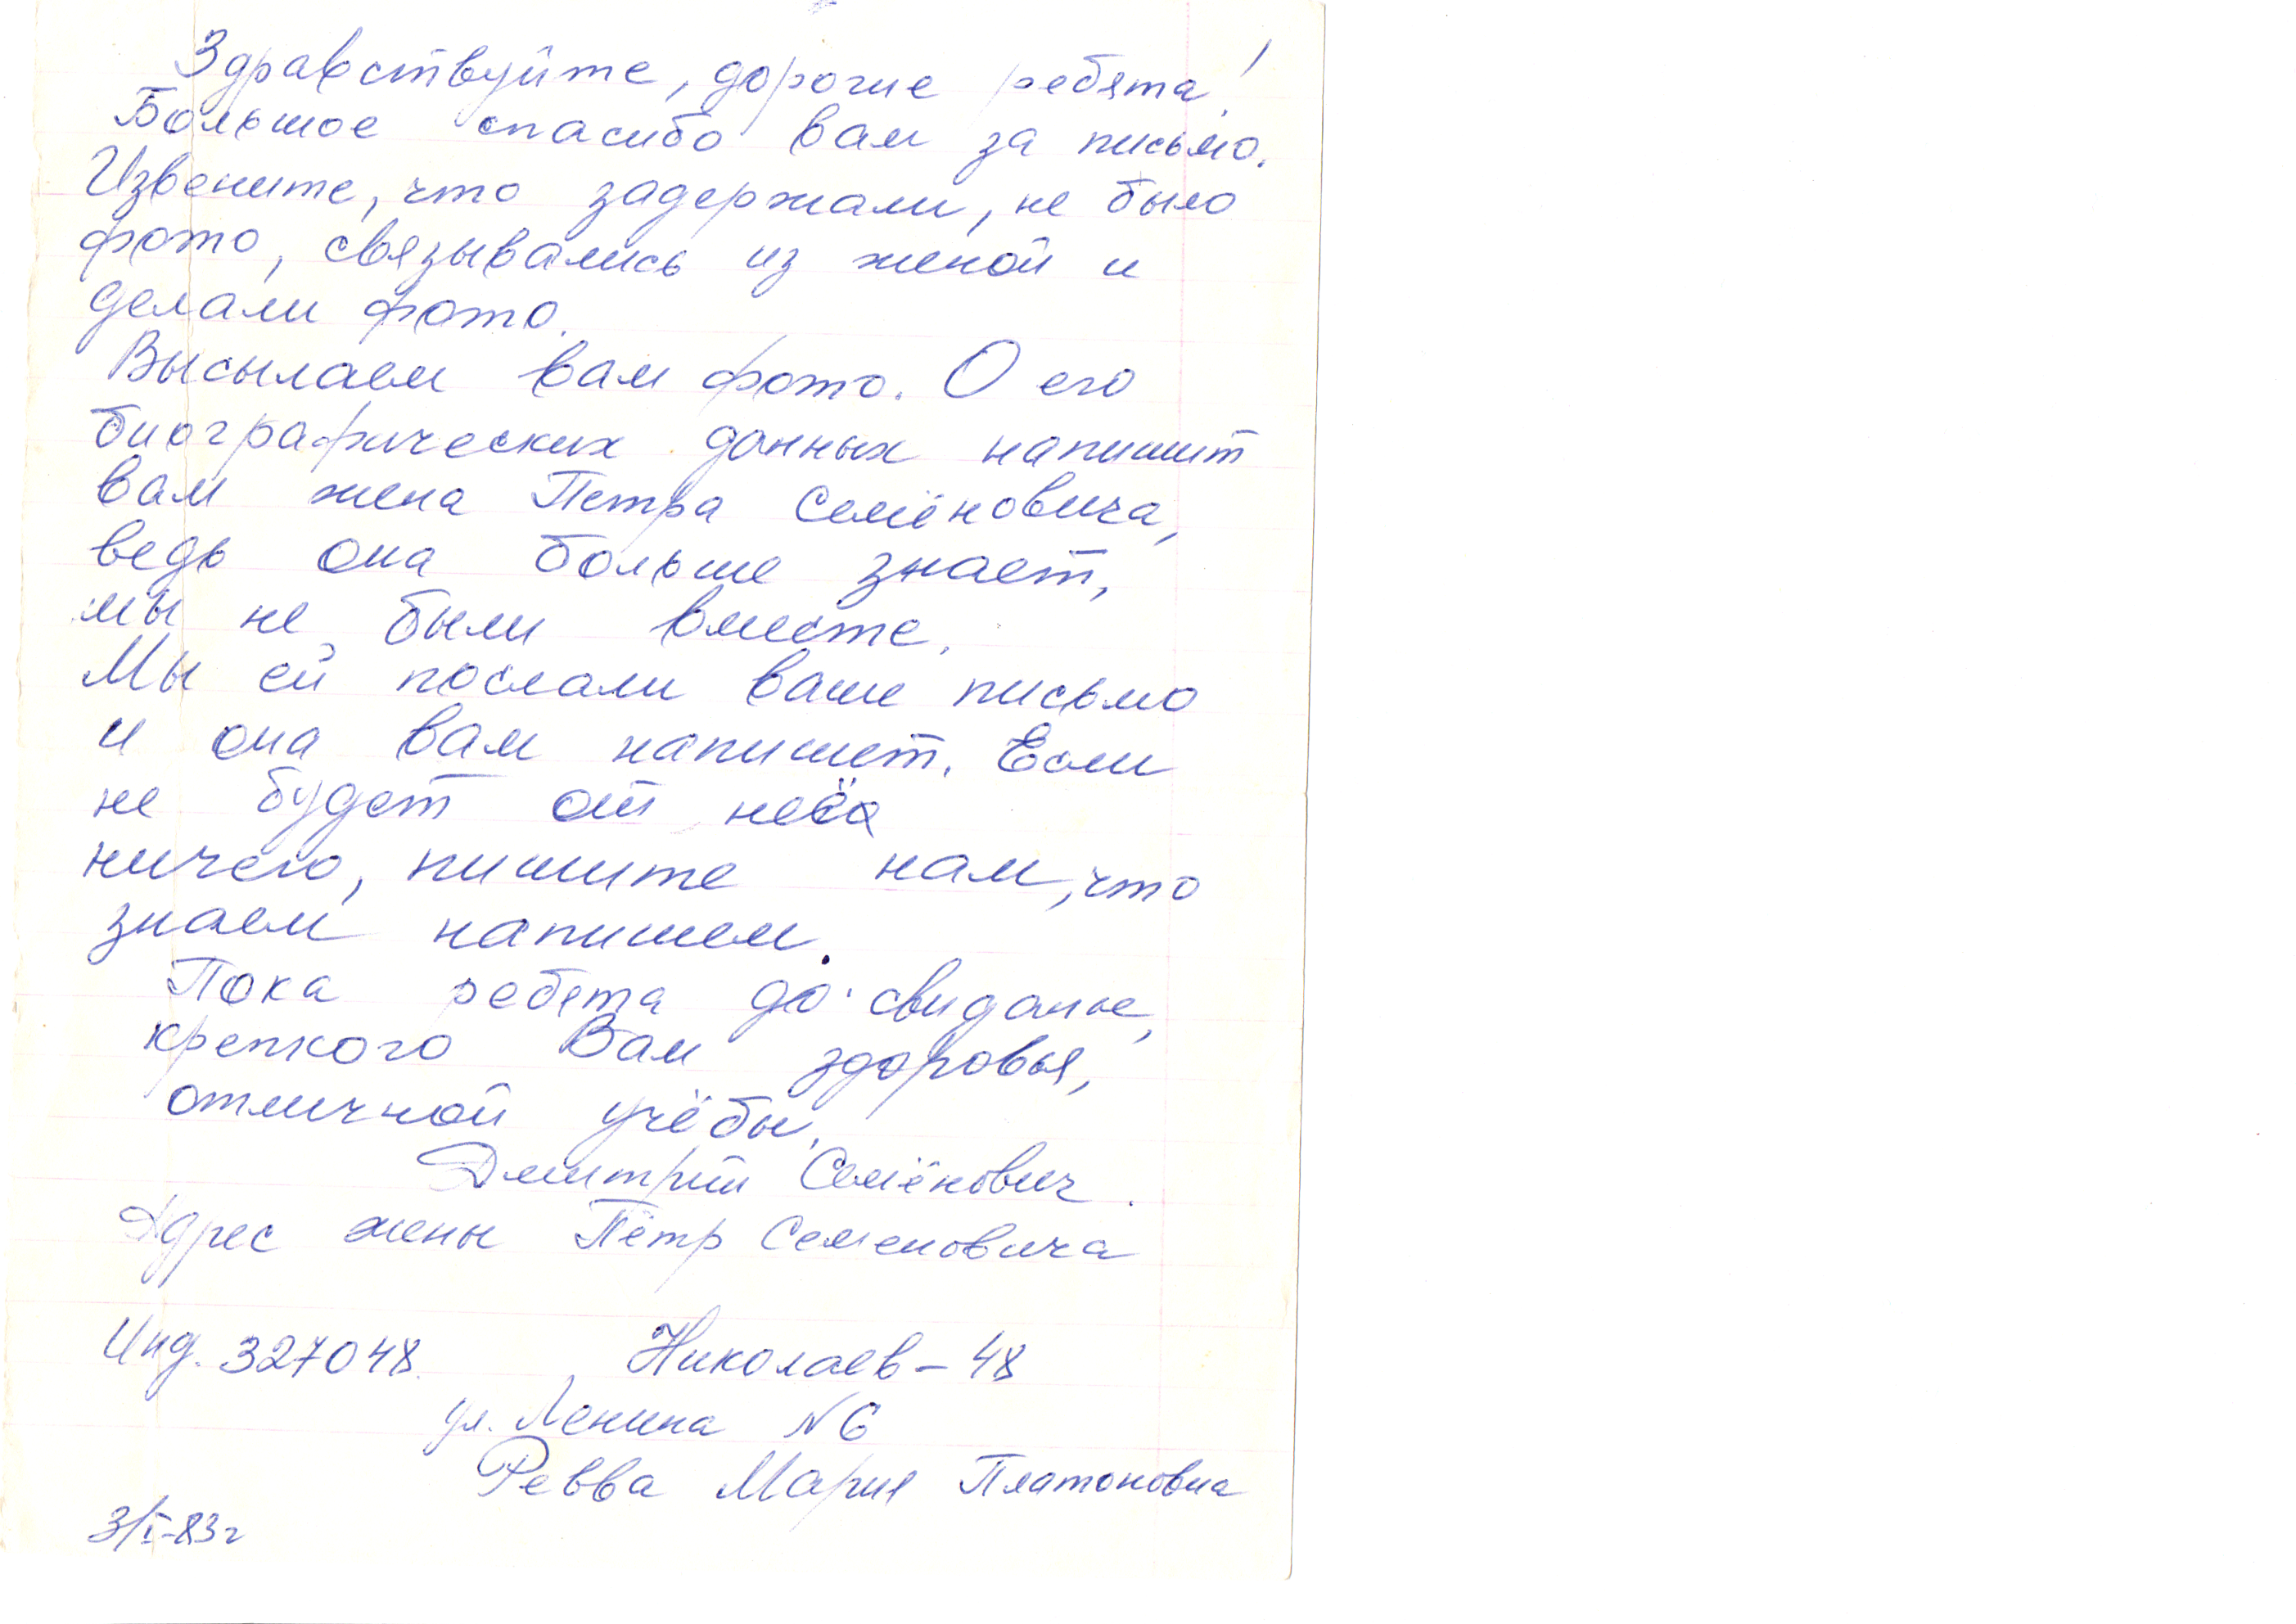 Здравствуйте, дорогие ребята!
Большое спасибо вам за письмо.
Извените, что задержали, не было
фото, связывались из женой и
делали фото.
Высылаем вам фото. О его
биографических данных напишит
вам жена Петра Семёновича,
ведь она больше знает,
мы не были вместе.
Мы ей послали ваше письмо
и она вам напишет. Если
не будет от неё
ничего, пишите нам, что
знаем напишем.
Пока ребята до свиданье,
крепкого Вам здоровья,
отличной учёбы.
Дмитрий Семёнович.
Адрес жены Пётр Семеновича
Инд. 327048. Николаев-48
ул. Ленина N6
Ревва Мария Платоновна
3/I-83г